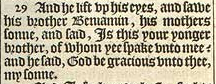 29 And he lift vp his eyes, and sawe
his brother Beniamin, his mothers
sonne, and said, Is this your yonger
brother, of whom yee spake vnto mee?
and he said, God be gracious vnto thee,
my sonne.